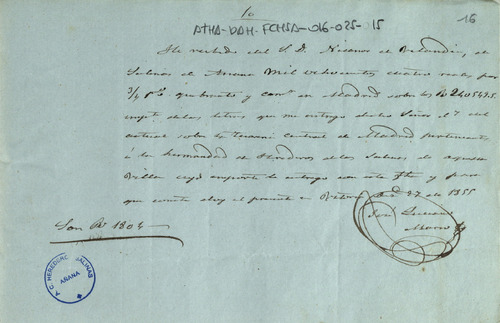 10
ATHA-DAH-FCHSA-016-025-15
16
He recibido del S. D. Nicanor de
Salinas de Anana Mil ochocientos cuatro reales por
3/4 p% quebranto y en Madrid sobre los Rs 240549..
de las letras que me entrego dicho Señor el 7 del
actual sobre la central de Madrid perteneciente
á la hermandad de Herederos de las Salinas de aquella
Villa cuyo importe le entrego con esta fha y para
que conste doy el presente en 27 de 1855
Son Rs 1804
José
F. C. HEREDEROS SALINAS
AÑANA